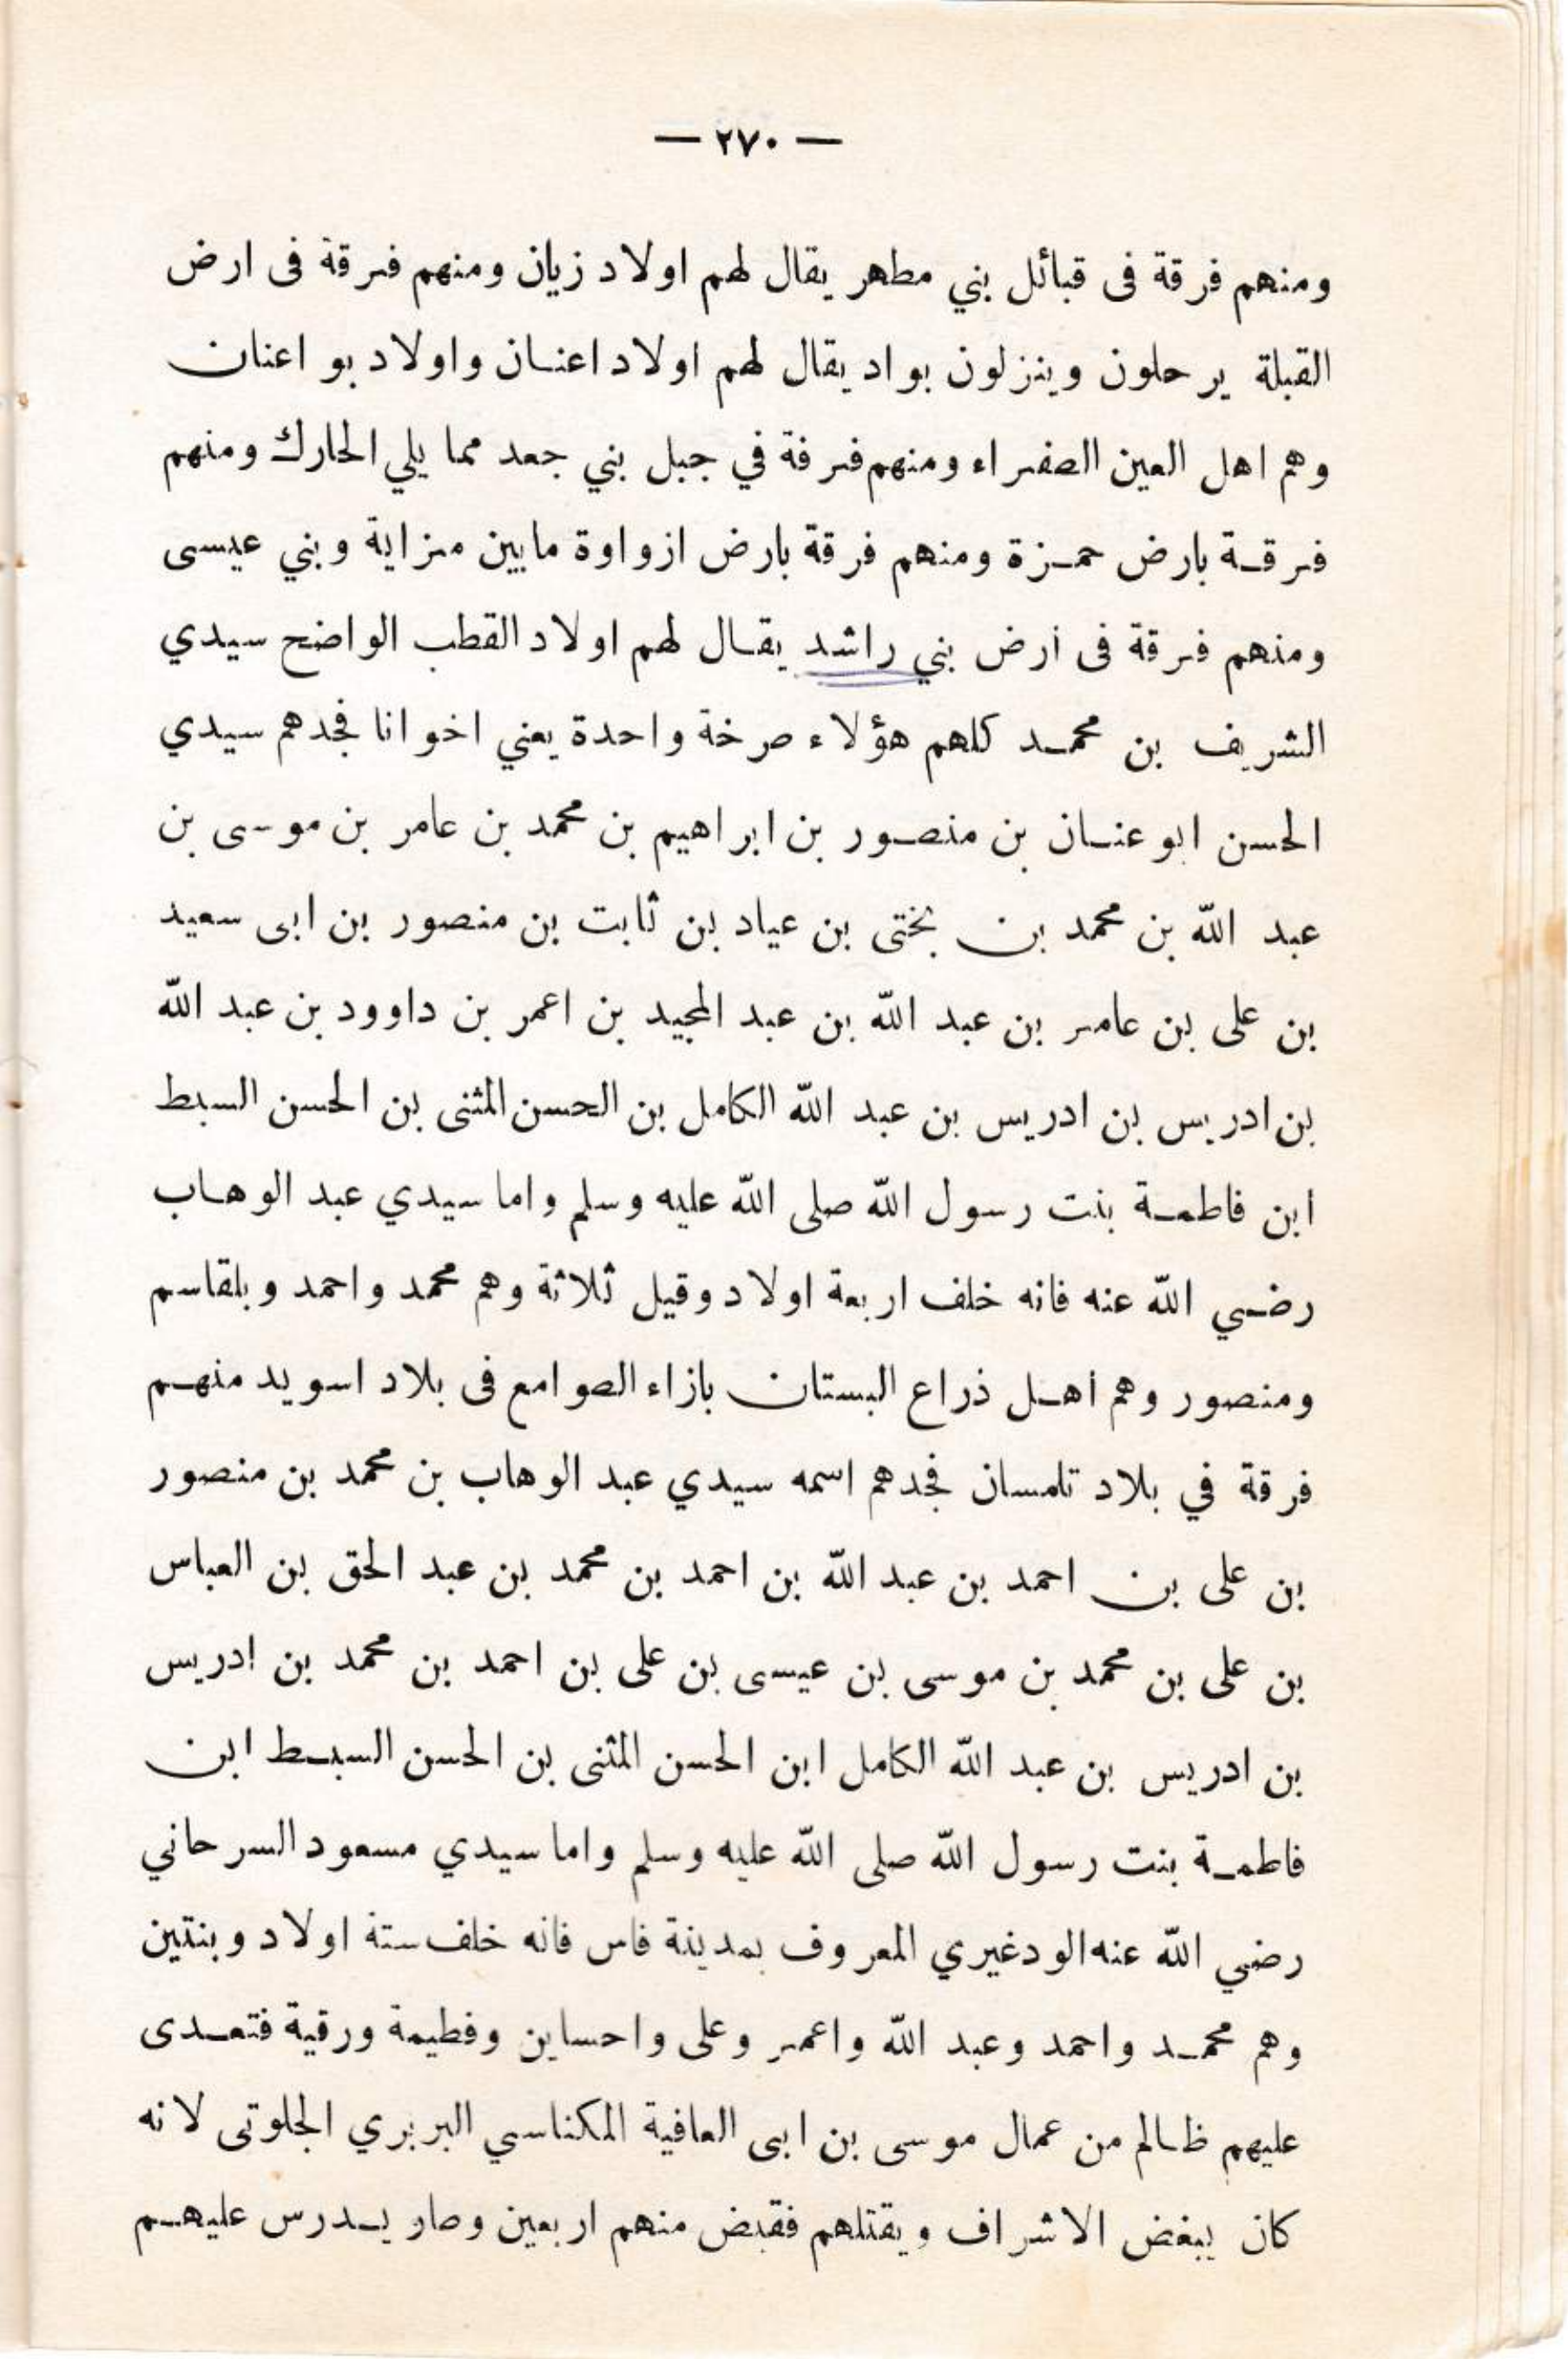 — ٢٧٠ —
ومنهم فرقة فى قبائل بني مطهر يقال لهم اولاد زيان ومنهم فرقة فى ارض
القبلة يرحلون وينزلون بواد يقال لهم اولاد اعنان واولاد بو اعنان
وهم اهل العين الصفراء ومنهم فرقة في جبل بني جعد مما يلي الحارك ومنهم
فرقة بارض حمزة ومنهم فرقة بارض ازواوة مابين مزاية وبني عيسى
ومنهم فرقة فى أرض بني راشد يقال لهم اولاد القطب الواضح سيدي
الشريف بن محمد كلهم هؤلاء صرخة واحدة يعني اخوانا فجدهم سيدي
الحسن ابو عنان بن منصور بن ابراهيم بن محمد بن عامر بن موسى بن
عبد الله بن محمد بن بختى بن عياد بن ثابت بن منصور بن ابى سعيد
بن على بن عامر بن عبد الله بن عبد المجيد بن اعمر بن داوود بن عبد الله
بن ادريس بن ادريس بن عبد الله الكامل بن الحسن المثنى بن الحسن السبط
ابن فاطمة بنت رسول الله صلى الله عليه وسلم واما سيدي عبد الوهاب
رضي الله عنه فانه خلف اربعة اولاد وقيل ثلاثة وهم محمد واحمد وبلقاسم
ومنصور وهم أهل ذراع البستان بازاء الصوامع فى بلاد اسويد منهم
فرقة في بلاد تلمسان فجدهم اسمه سيدي عبد الوهاب بن محمد بن منصور
بن على بن احمد بن عبد الله بن احمد بن محمد بن عبد الحق بن العباس
بن على بن محمد بن موسى بن عيسى بن على بن احمد بن محمد بن ادريس
بن ادريس بن عبد الله الكامل ابن الحسن المثنى بن الحسن السبط ابن
فاطمة بنت رسول الله صلى الله عليه وسلم واما سيدي مسعود السرحاني
رضي الله عنه الودغيري المعروف بمدينة فاس فانه خلف ستة اولاد وبنتين
وهم محمد واحمد وعبد الله واعمر وعلى واحساين وفطيمة ورقية فتعدى
عليهم ظالم من عمال موسى بن ابى العافية المكناسي البربري الجلوتى لانه
كان يبغض الاشراف ويقتلهم فقبض منهم اربعين وصار يدرس عليهم